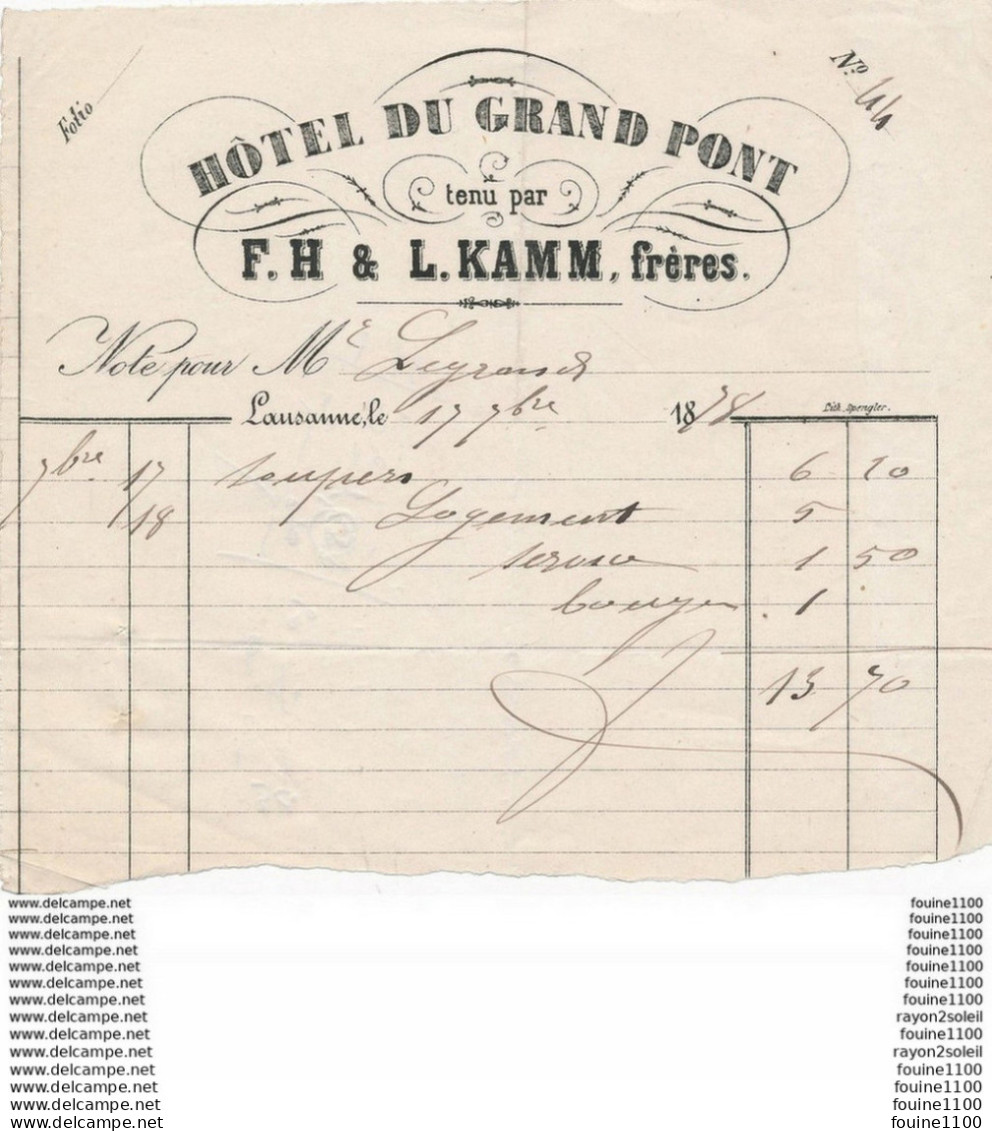 Folio
Nº 44
HÔTEL DU GRAND PONT
tenu par
F. H & L. KAMM, frères.
Note pour Mr Legrand
Lausanne, le 17 7bre 1878
Lith. Spengler.
7bre 17 soupers 6 20
18 Logement 5
service 1 50
bougie 1
13 70
www.delcampe.net fouine1100
www.delcampe.net fouine1100
www.delcampe.net fouine1100
www.delcampe.net fouine1100
www.delcampe.net fouine1100
www.delcampe.net fouine1100
www.delcampe.net fouine1100
www.delcampe.net rayon2soleil
www.delcampe.net fouine1100
www.delcampe.net rayon2soleil
www.delcampe.net fouine1100
www.delcampe.net fouine1100
www.delcampe.net fouine1100
www.delcampe.net fouine1100